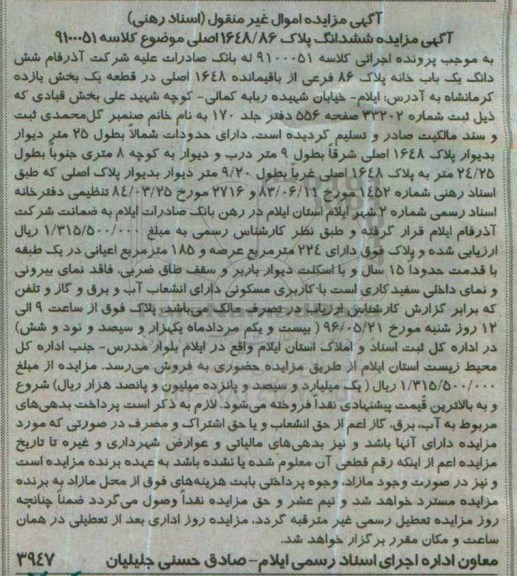 آگهی مزایده اموال غیر منقول (اسناد رهنی)
آگهی مزایده ششدانگ پلاک ۱۶۴۸/۸۶ اصلی موضوع کلاسه ۹۱۰۰۰۵۱
به موجب پرونده اجرائی کلاسه ۹۱۰۰۰۵۱ له بانک صادرات علیه شرکت آذرفام شش
دانگ یک باب خانه پلاک ۸۶ فرعی از باقیمانده ۱۶۴۸ اصلی در قطعه یک بخش یازده
کرمانشاه به آدرس: ایلام- خیابان شهیده ربابه کمالی- کوچه شهید علی بخش قبادی که
ذیل ثبت شماره ۳۳۲۰۲ صفحه ۵۵۶ دفتر جلد ۱۷۰ به نام خانم صنمبر گل‌محمدی ثبت
و سند مالکیت صادر و تسلیم گردیده است. دارای حدودات شمالاً بطول ۲۵ متر دیوار
بدیوار پلاک ۱۶۴۸ اصلی شرقاً بطول ۹ متر درب و دیوار به کوچه ۸ متری جنوباً بطول
۲۴/۲۵ متر به پلاک ۱۶۴۸ اصلی غرباً بطول ۹/۲۰ متر دیوار بدیوار پلاک اصلی که طبق
اسناد رهنی شماره ۱۴۵۲ مورخ ۸۳/۰۶/۱۱ و ۲۷۱۶ مورخ ۸۴/۰۳/۲۵ تنظیمی دفترخانه
اسناد رسمی شماره ۲ شهر ایلام استان ایلام در رهن بانک صادرات ایلام به ضمانت شرکت
آذرفام ایلام قرار گرفته و طبق نظر کارشناس رسمی به مبلغ ۱/۳۱۵/۵۰۰/۰۰۰ ریال
ارزیابی شده و پلاک فوق دارای ۲۲۴ مترمربع عرصه و ۱۸۵ مترمربع اعیانی در یک طبقه
با قدمت حدوداً ۱۵ سال و با اسکلت دیوار باربر و سقف طاق ضربی، فاقد نمای بیرونی
و نمای داخلی سفید کاری است با کاربری مسکونی دارای انشعاب آب و برق و گاز و تلفن
که برابر گزارش کارشناس ارزیاب در تصرف مالک می‌باشد. پلاک فوق از ساعت ۹ الی
۱۲ روز شنبه مورخ ۹۶/۰۵/۲۱ ( بیست و یکم مردادماه یکهزار و سیصد و نود و شش)
در اداره کل ثبت اسناد و املاک استان ایلام واقع در ایلام بلوار مدرس- جنب اداره کل
محیط زیست استان ایلام از طریق مزایده حضوری به فروش می‌رسد. مزایده از مبلغ
۱/۳۱۵/۵۰۰/۰۰۰ ریال ( یک میلیارد و سیصد و پانزده میلیون و پانصد هزار ریال) شروع
و به بالاترین قیمت پیشنهادی نقداً فروخته می‌شود. لازم به ذکر است پرداخت بدهی‌های
مربوط به آب، برق، گاز اعم از حق انشعاب و یا حق اشتراک و مصرف در صورتی که مورد
مزایده دارای آنها باشد و نیز بدهی‌های مالیاتی و عوارض شهرداری و غیره تا تاریخ
مزایده اعم از اینکه رقم قطعی آن معلوم شده یا نشده باشد به عهده برنده مزایده است
و نیز در صورت وجود مازاد، وجوه پرداختی بابت هزینه‌های فوق از محل مازاد به برنده
مزایده مسترد خواهد شد و نیم عشر و حق مزایده نقداً وصول می‌گردد ضمناً چنانچه
روز مزایده تعطیل رسمی غیر مترقبه گردد، مزایده روز اداری بعد از تعطیلی در همان
ساعت و مکان مقرر برگزار خواهد شد.
معاون اداره اجرای اسناد رسمی ایلام- صادق حسنی جلیلیان ۳۹۴۷